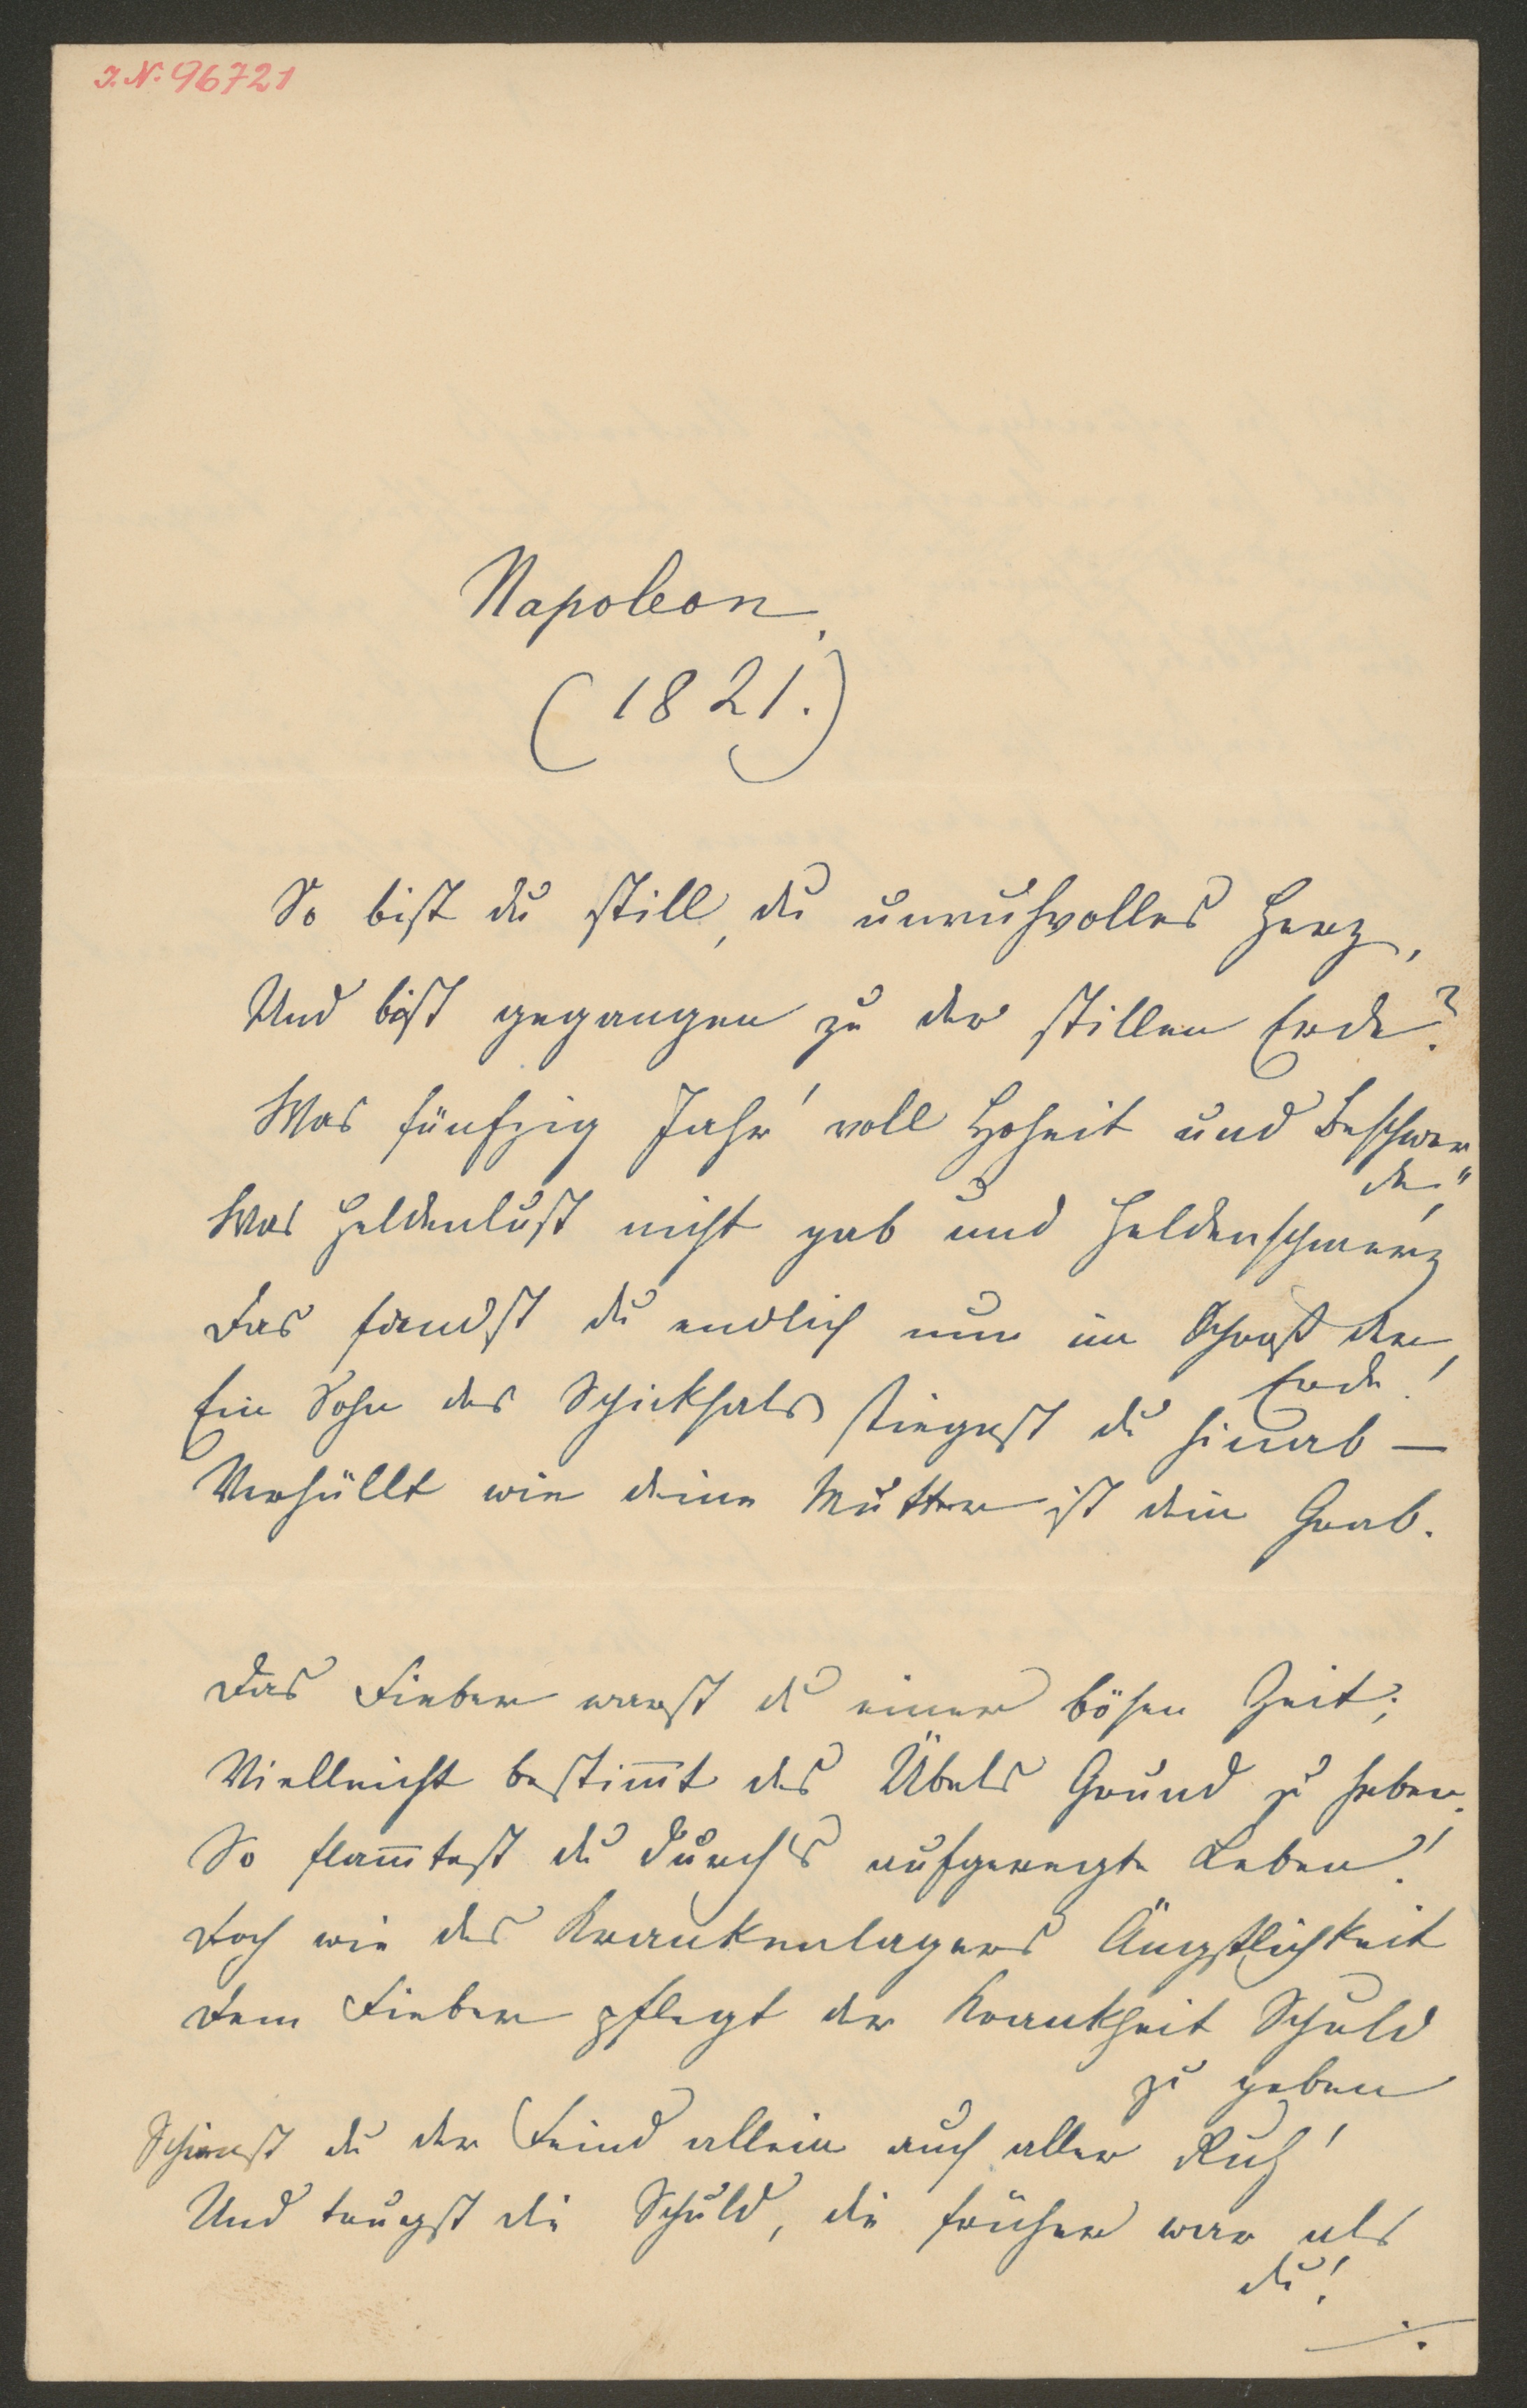 J. N. 96721
Napoleon.
(1821.)
So bist du still, du unruhvolles Herz,
Und bist gegangen zu der stillen Erde?
Was fünfzig Jahr' voll Hoheit und Beschwer
de,"
Was Heldenlust nicht gab und Heldenschmerz
Das fandst du endlich nun im Schoß der
Erde!
Ein Sohn des Schicksals stiegest du hinab –
Verhüllt wie deine Mutter ist dein Grab.
Das Fieber warst du einer bösen Zeit;
Vielleicht bestimmt des Übels Grund zu heben.
So flammtest du durch's aufgeregte Leben!
Doch wie des Krankenlagers Ängstlichkeit
Dem Fieber pflegt der Krankheit Schuld
zu geben
Schienst du der Feind allein auch aller Ruh'
Und trugst die Schuld, die früher war als
du!
./.